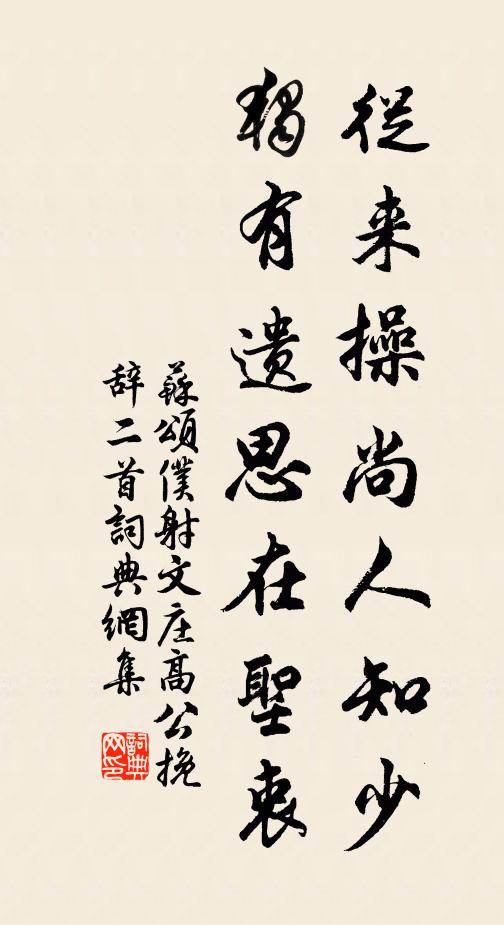 從来操尚人知少
獨有遗思在聖衷
蘇頌僕射文庄高公挽
辞二首詞典網集
詞典网印